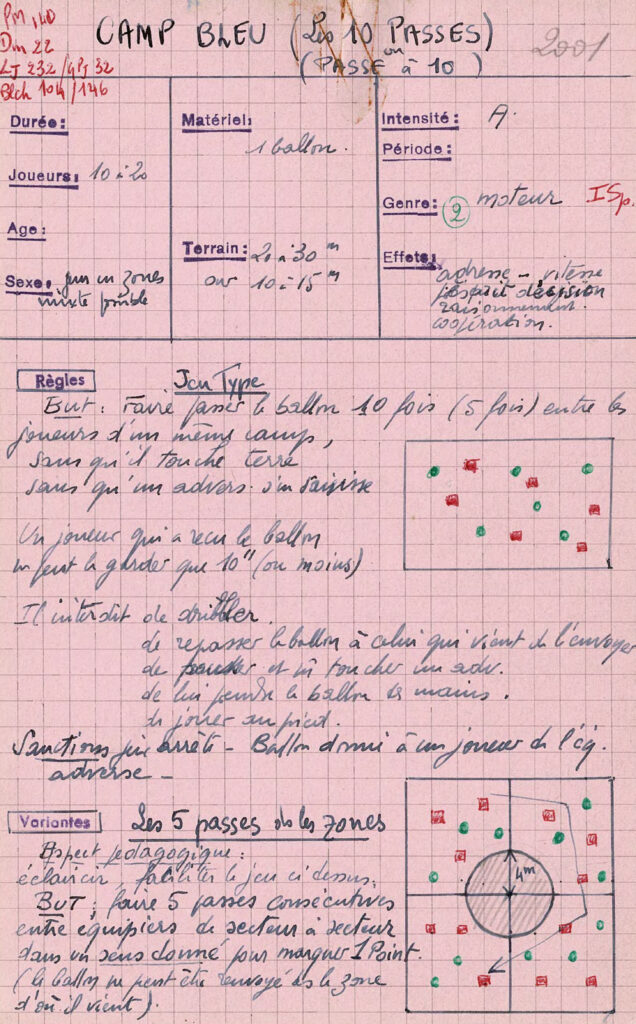 PM 140
Dm 22
LJ 232 / GPJ 32
Blch 104/146
CAMP BLEU (Les 10 PASSES)
ou
(PASSE à 10)
2001
Durée:
Joueurs: 10 à 20
Age:
Sexe: jeu en zones
mixte
Matériel:
1 ballon.
Terrain: 20 à 30 m
sur 10 à 15 m
Intensité: A.
Période:
Genre: 2 moteur ISp.
Effets:
adresse - vitesse
esprit décision
raisonnement.
coopération.
Règles
Jeu Type
BUT: Faire passer le ballon 10 fois (5 fois) entre les
joueurs d'un même camp,
sans qu'il touche terre
sans qu'un advers. s'en saisisse
Un joueur qui a reçu le ballon
ne peut le garder que 10" (ou moins)
Il interdit de dribbler.
de repasser le ballon à celui qui vient de l'envoyer
de pousser et toucher un adv.
de lui prendre le ballon des mains.
de jouer au pied.
Sanctions jeu arrêté - Ballon donné à un joueur de l'éq.
adverse -
Variantes
Les 5 passes ds les zones
Aspect pédagogique:
éclaircir faciliter le jeu ci dessus.
BUT: faire 5 passes consécutives
entre équipiers de secteur à secteur
dans un sens donné pour marquer 1 Point.
(le ballon ne peut être renvoyé ds le zone
d'où il vient).
4m